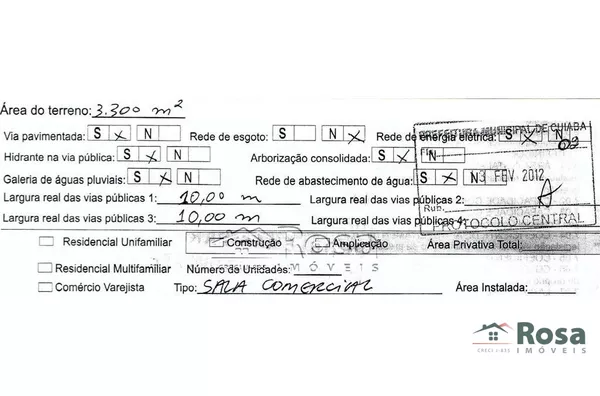 Área do terreno: 3.300 m²
Via pavimentada: S x N Rede de esgoto: S N x Rede de energia elétrica: S x N
PREFEITURA MUNICIPAL DE CUIABÁ
Hidrante na via pública: S x N Arborização consolidada: S x N
Galeria de águas pluviais: S x N Rede de abastecimento de água: S x N 3 FEV 2012
Largura real das vias públicas 1: 10,00 m Largura real das vias públicas 2:
Largura real das vias públicas 3: 10,00 m Largura real das vias públicas 4:
PROTOCOLO CENTRAL
Residencial Unifamiliar Construção Ampliação Área Privativa Total:
Rosa
IMÓVEIS
Residencial Multifamiliar Número da Unidades:
Comércio Varejista Tipo: SALA COMERCIAL Área Instalada:
Rosa
IMÓVEIS